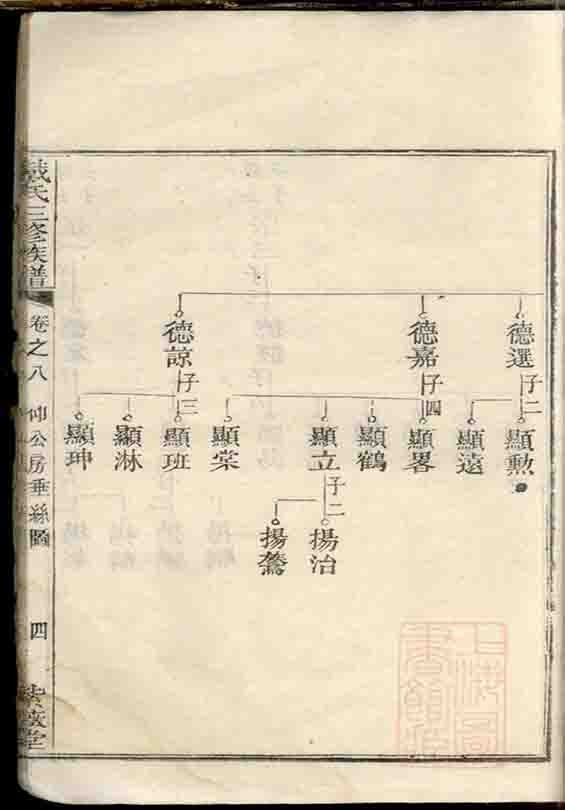 德選
子二
顯勲
顯遠
德嘉
子四
顯畧
顯鶴
顯立
子二
揚治
揚鶱
顯棠
德諒
子三
顯班
顯淋
顯珅
戴氏三修族譜
卷之八
仰公房垂絲圖
四
上海圖書館藏